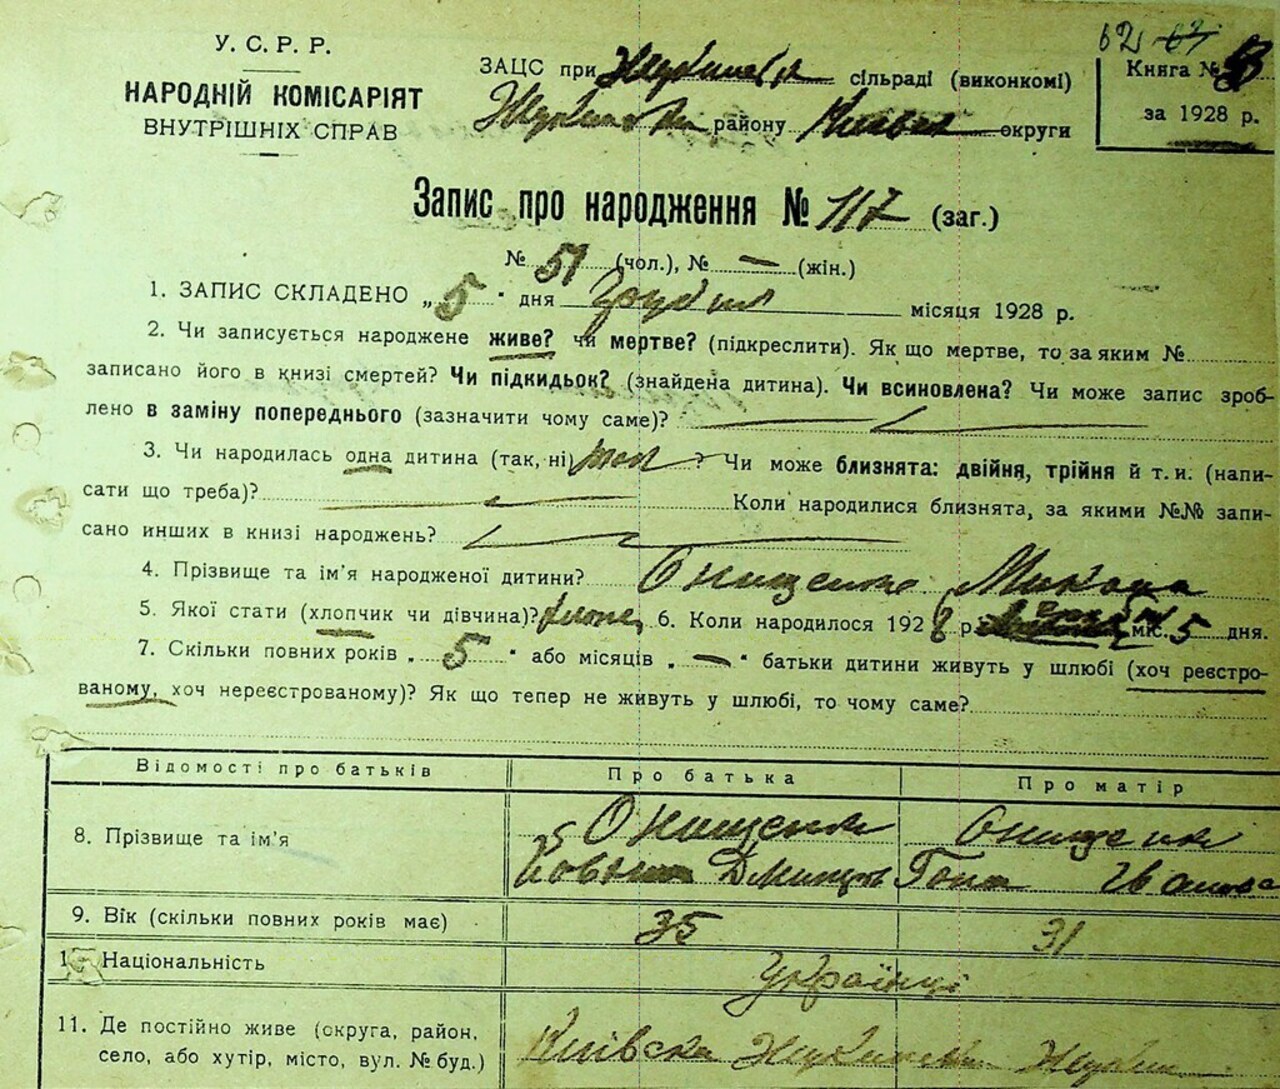 У. С. Р. Р.
НАРОДНІЙ КОМІСАРІЯТ
ВНУТРІШНІХ СПРАВ
62
ЗАЦС при сільраді (виконкомі)
району округи
Книга №
за 1928 р.
Запис про народження № 117 (заг.)
№ 51 (чол.), № — (жін.)
1. ЗАПИС СКЛАДЕНО „5" дня Грудня місяця 1928 р.
2. Чи записується народжене живе? чи мертве? (підкреслити). Як що мертве, то за яким №
записано його в книзі смертей? Чи підкидьок? (знайдена дитина). Чи всиновлена? Чи може запис зроб-
лено в заміну попереднього (зазначити чому саме)?
3. Чи народилась одна дитина (так, ні) так ? Чи може близнята: двійня, трійня й т. и. (напи-
сати що треба)? Коли народилися близнята, за якими №№ запи-
сано инших в книзі народжень?
4. Прізвище та ім'я народженої дитини? Онищенко Микола
5. Якої стати (хлопчик чи дівчина)? хлопч. 6. Коли народилося 1928 р. міс. 5 дня.
7. Скільки повних років „5" або місяців „—" батьки дитини живуть у шлюбі (хоч реєстро-
ваному, хоч нереєстрованому)? Як що тепер не живуть у шлюбі, то чому саме?
Відомості про батьків Про батька Про матір
8. Прізвище та ім'я Онищенко Онищенко
9. Вік (скільки повних років має) 35 31
Національність Українці
11. Де постійно живе (округа, район,
село, або хутір, місто, вул. № буд.) Київська